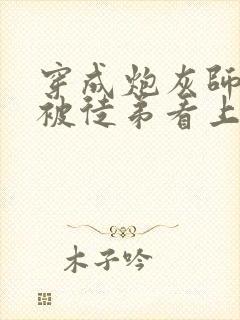 穿成炮灰師
被徒弟看上
木子吟